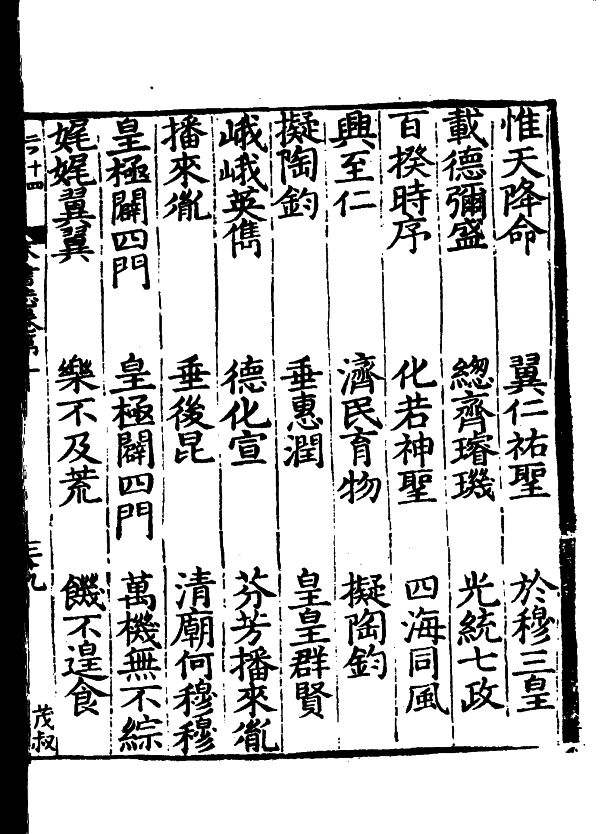 惟天降命　翼仁祐聖　於穆三皇
載德彌盛　緫齊璿璣　光統七政
百揆時序　化若神聖　四海同風
興至仁　濟民育物　擬陶鈞
擬陶鈞　垂惠潤　皇皇群賢
峨峨英儁　德化宣　芬芳播來胤
播來胤　垂後昆　清廟何穆穆
皇極闢四門　皇極闢四門　萬機無不綜
娓娓翼翼　樂不及荒　饑不遑食
茂叔